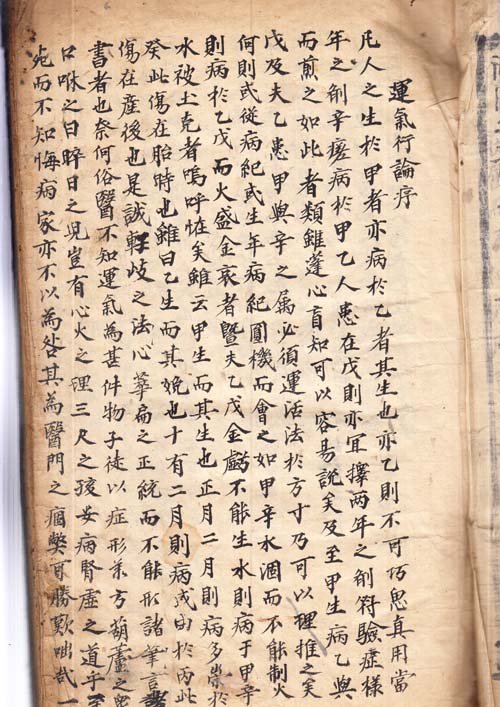 運氣行論序
凡人之生於甲者亦病於乙者其生也亦乙則不可巧思真用當
年之劑辛瘥病於甲乙人患在戊則亦宜擇两年之劑符驗症樣
而煎之如此者類雖蓬心盲知可以容易說矣及至甲生病乙與
戊及夫乙患甲與辛之属必須運活法於方寸乃可以理推之矣
何則或從病紀或生年病紀圓機而會之如甲辛水涸而不能制火
則病於乙戊而火盛金衰者暨夫乙戊金虧不能生水則病于甲辛
水被土克者嗚呼恠矣雖云甲生而其生也正月二月則病多崇於
癸此傷在胎時也雖曰乙生而其娩也十有二月則病或由於丙此
傷在産後也是誠軒歧之法心華扁之正統而不能形諸筆言
書者也奈何俗醫不知運氣為甚件物子徒以症形業方葫蘆之
口咻之曰晬日之兒豈有心火之理三尺之孩安病腎虛之道乎至
死而不知悔病家亦不以為咎其為醫門之痼弊可勝歎咄哉一